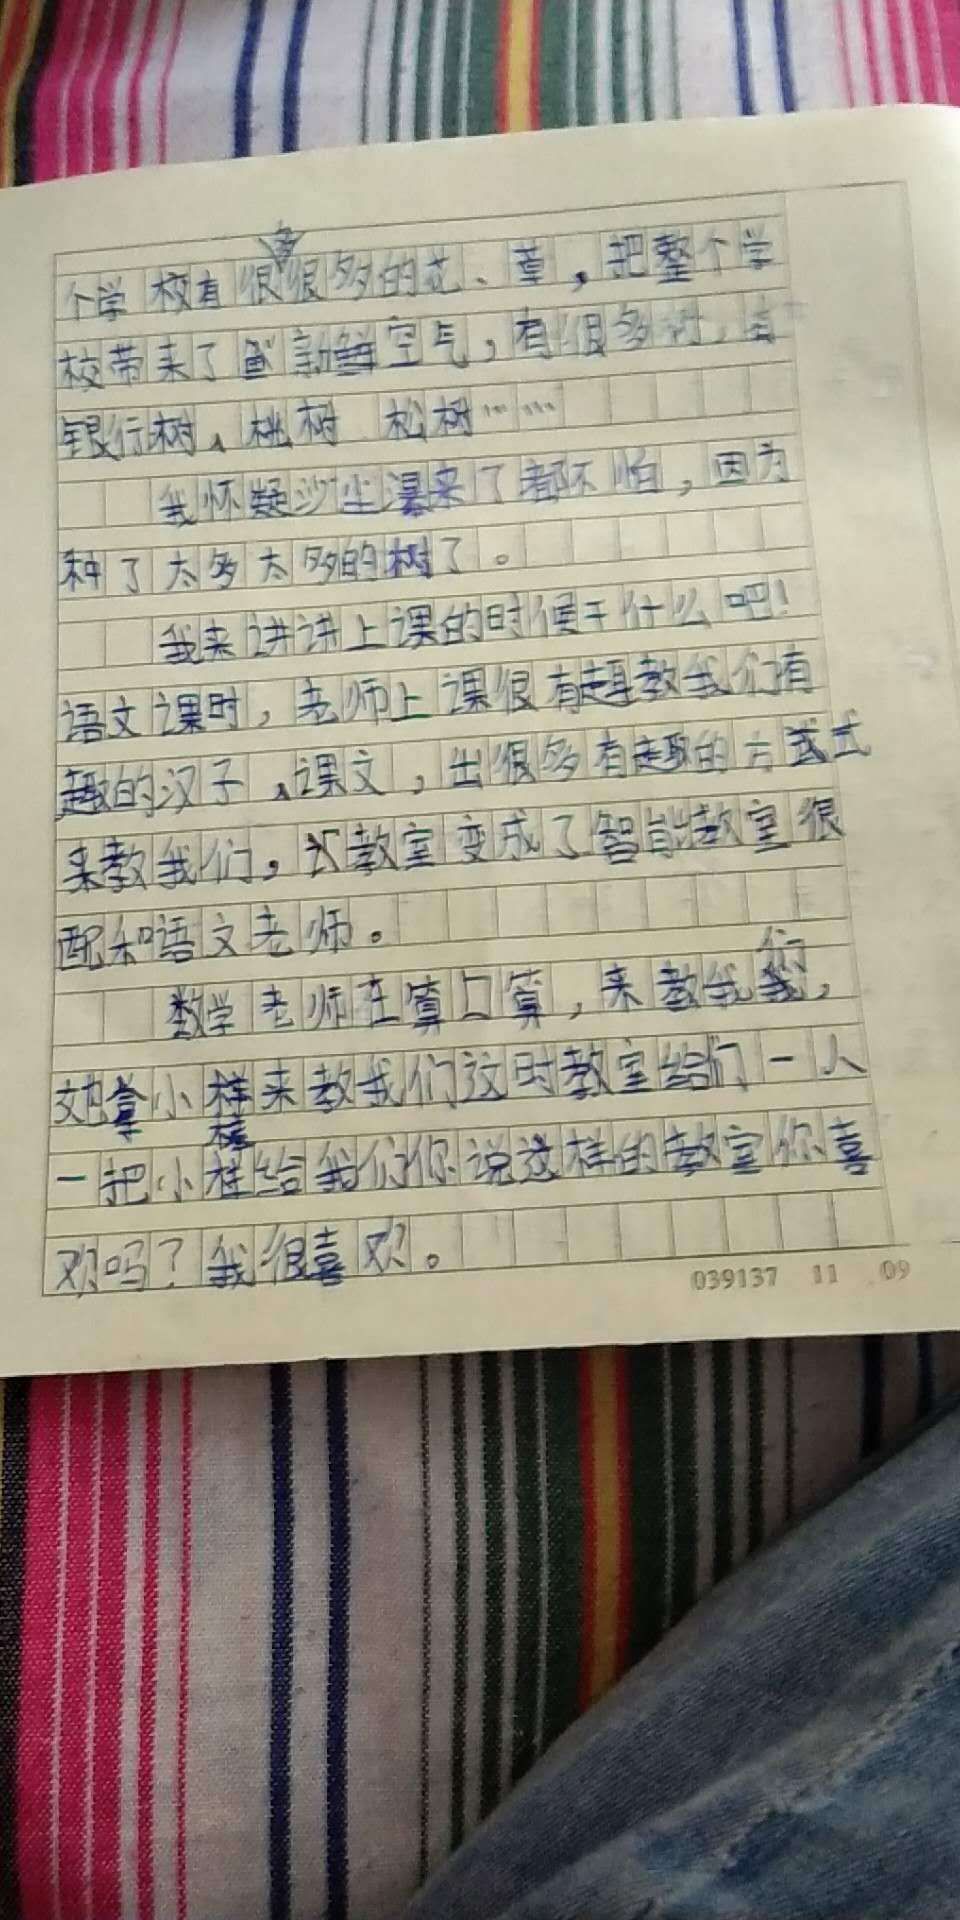 个学校有很很多的花、草，把整个学
校带来了新鲜空气，有很多树，有
银行树、桃树、松树……
我怀疑沙尘瀑来了都不怕，因为
种了太多太多的树了。
我来讲讲上课的时侯干什么吧！
语文课时，老师上课很有趣教我们有
趣的汉子、课文，出很多有趣的方式
来教我们，教室变成了智能教室很
配和语文老师。
数学老师在算口算，来教我们，
她拿小样来教我们这时教室给们一人
一把小样给我们你说这样的教室你喜
欢吗？我很喜欢。
039137 11 09